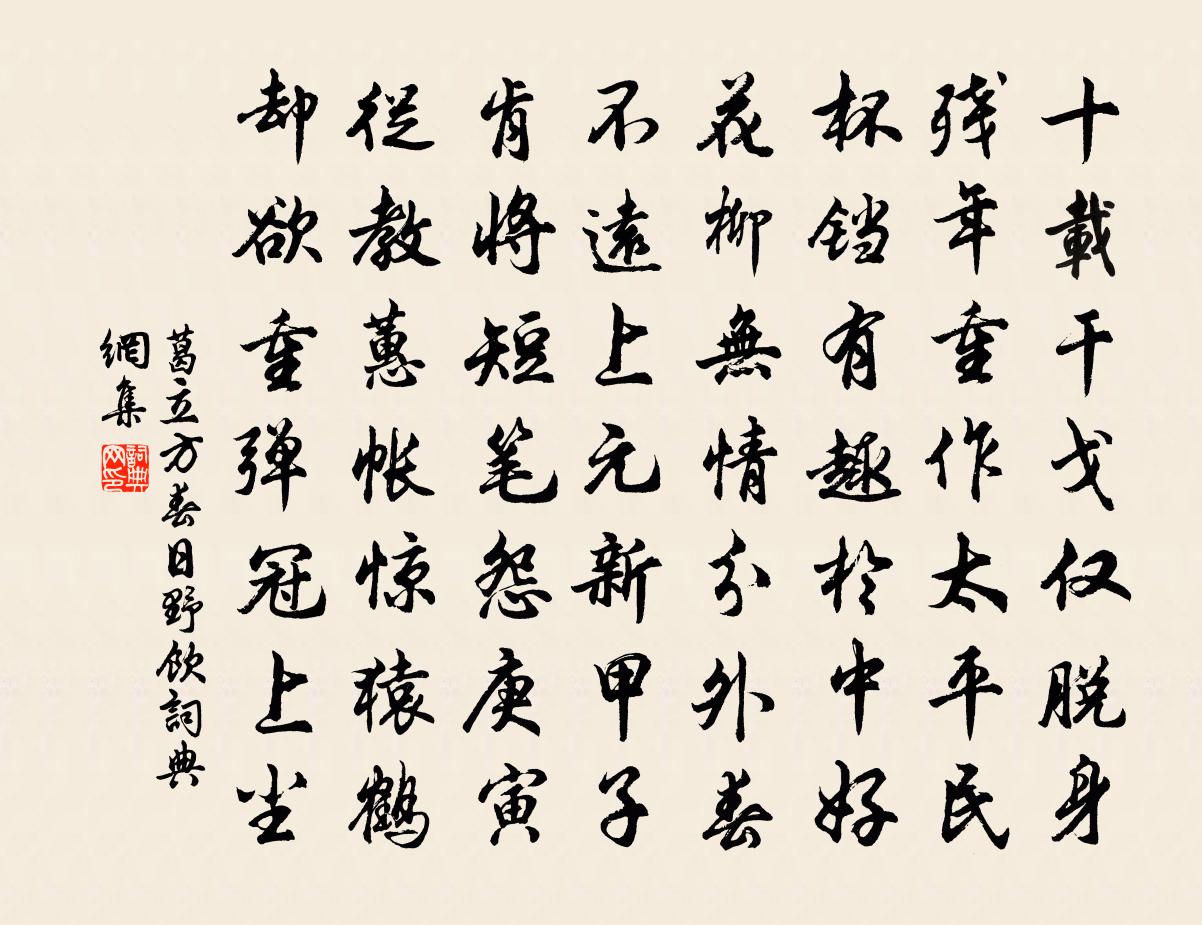 十載干戈仅脱身
残年重作太平民
杯铛有趣於中好
花柳無情分外春
不遠上元新甲子
肯將短笔怨庚寅
從教蕙帐惊猿鶴
却欲重弹冠上尘
葛立方春日野飲詞典
網集
詞典网印